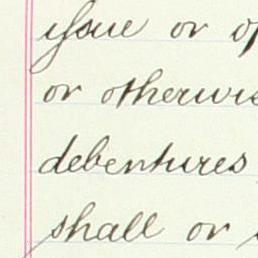 issue or of
or otherwis
debentures
shall or